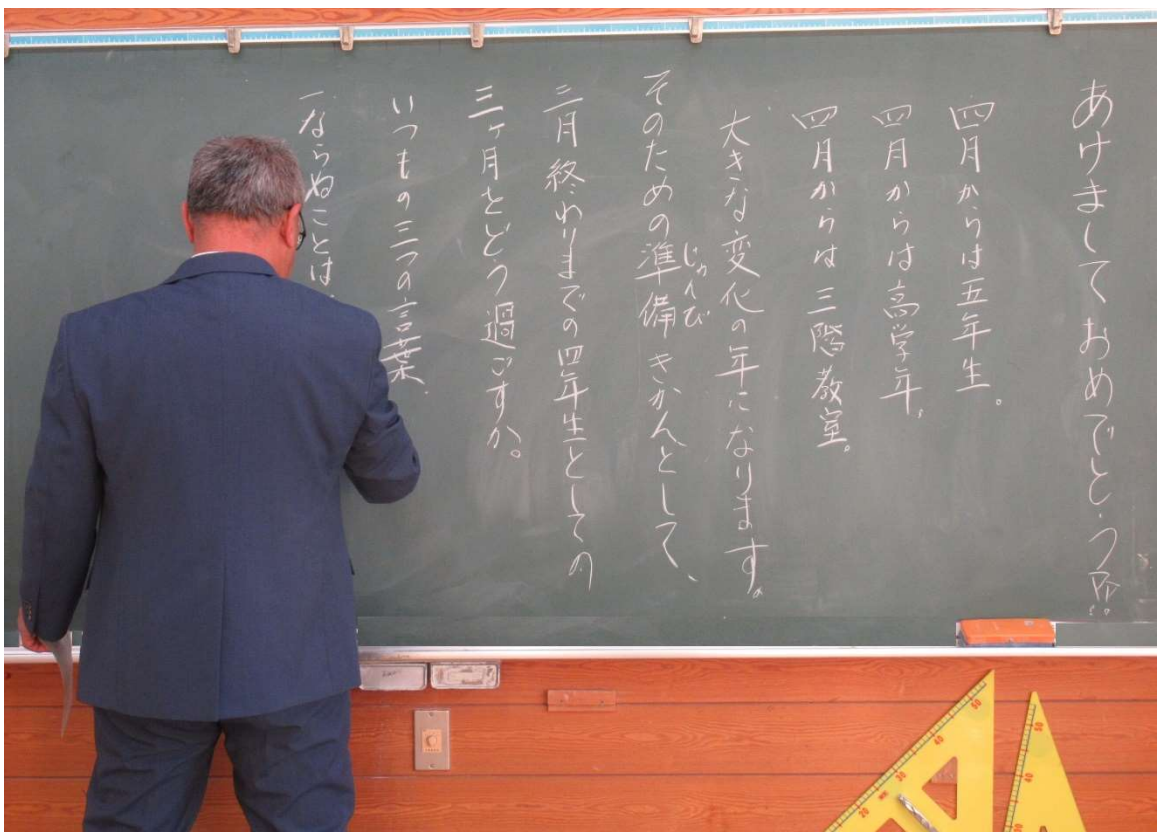 あけましておめでとう
四月からは五年生。
四月からは高学年。
四月からは三階教室。
大きな変化の年になります。
そのための準備きかんとして、
じゅんび
三月終わりまでの四年生としての
三ヶ月をどう過ごすか。
いつもの三つの言葉、
ならぬことは